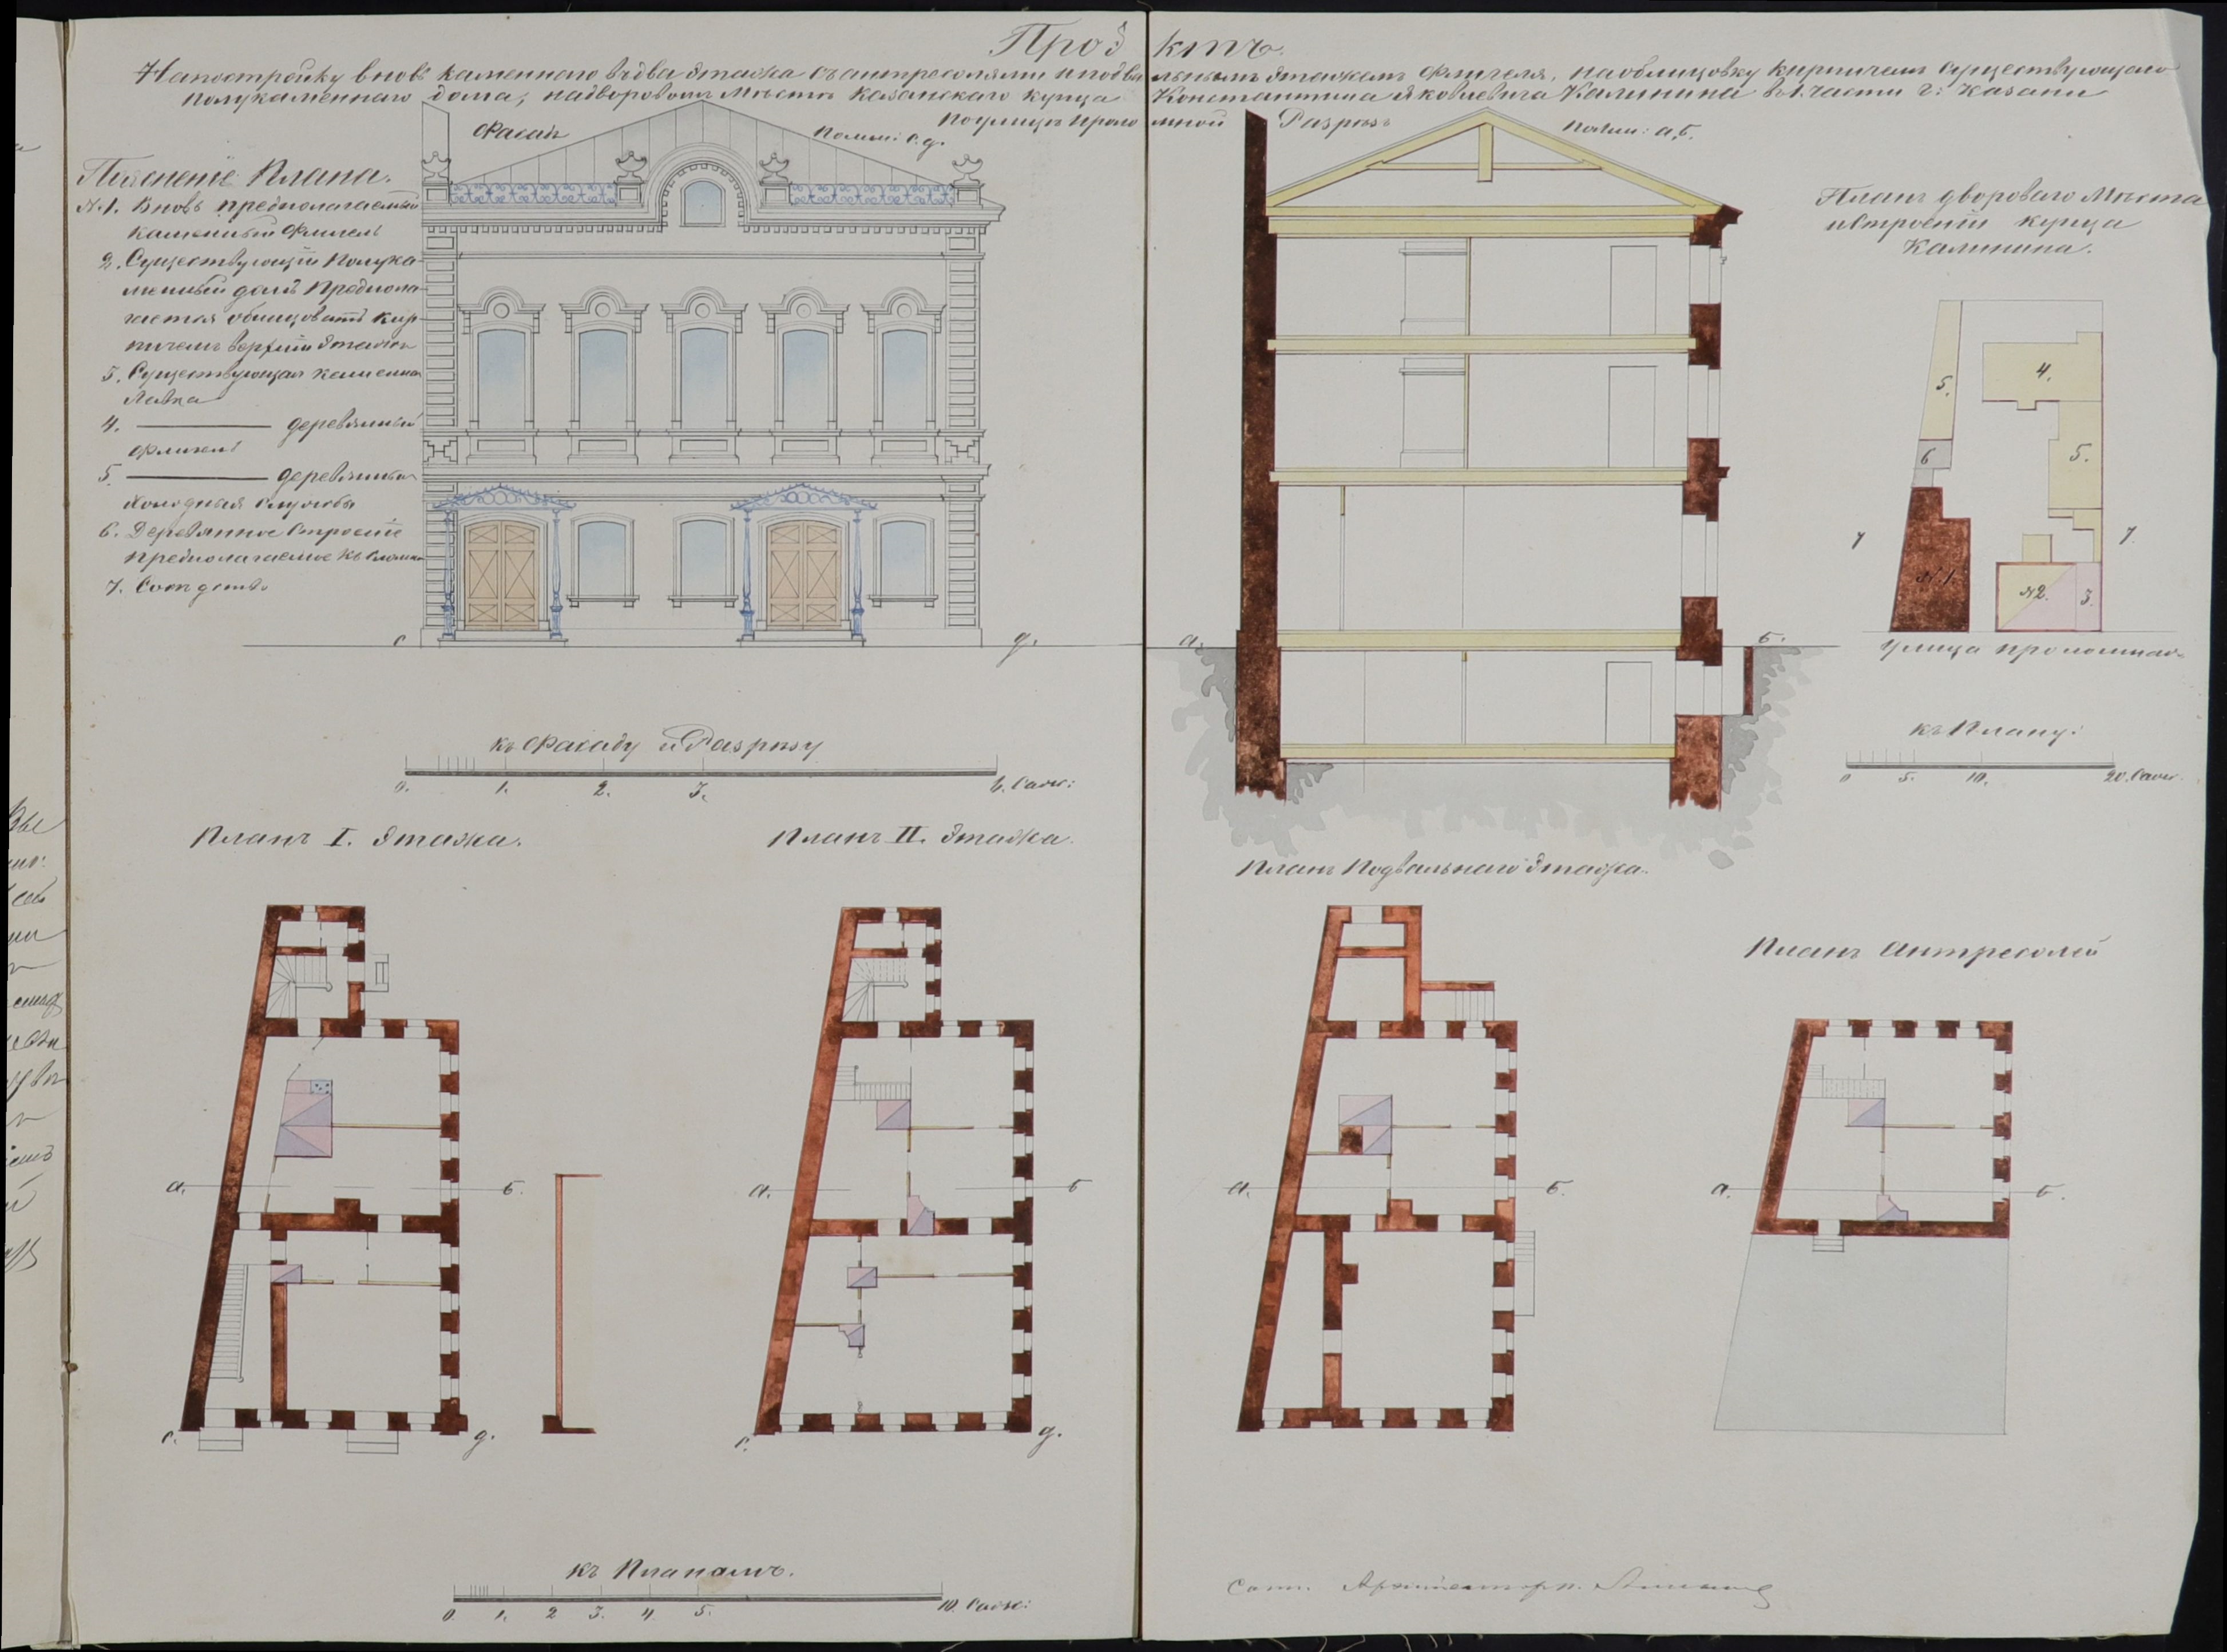 Проэктъ
На постройку вновь каменнаго въ два этажа съ антресолями и подвальнымъ этажемъ флигеля, на облицовку кирпичем существующаго
полукаменнаго дома, на дворовомъ мѣстѣ Казанскаго купца Константина Яковлевича Калинина в 1. части г: Казани
по улицѣ Проломной
Фасадъ
по лин: с. д.
Разрѣзъ
по лин: а, б.
Пояснение Плана.
№ 1. Вновь предполагаемый
каменный флигель
2. Существующий Полука-
менный домъ предпола-
гается облицовать кир-
пичемъ верхний этажъ
3. Существующая каменная
Лавка
4. ——— деревянный
флигель
5. ——— деревянныя
холодныя службы
6. Деревянное строение
предполагаемое къ сломке
7. Соседство
Планъ двороваго мѣста
и строений купца
Калинина.
5.
4.
6
5.
7
7.
№ 1.
№ 2.
3.
улица Проломная
с
д.
а.
б.
къ Фасаду и Разрѣзу
0. 1. 2. 3. 6. Саж:
къ Плану:
0 5. 10. 20. Саж.
Планъ I. этажа.
Планъ II. этажа.
Планъ Подвальнаго этажа.
Планъ Антресолей
а. б.
а. б
а. б.
а. б.
с. д.
с. д.
къ Планамъ.
0. 1. 2 3. 4 5. 10. Саж:
Архитекторъ